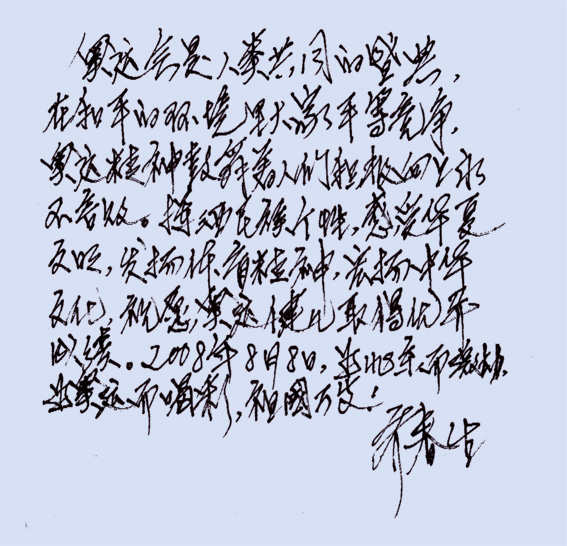 奥运会是人类共同的盛典，
在和平的环境里大家平等竞争，
奥运精神鼓舞着人们积极向上永
不言败。搏 民族个性，感受华夏
文明，发扬体育精神，弘扬中华
文化，祝愿奥运健儿取得优异
成绩。2008年8月8日，为北京而激动，
为奥运而喝彩，祖国万岁！
乔春